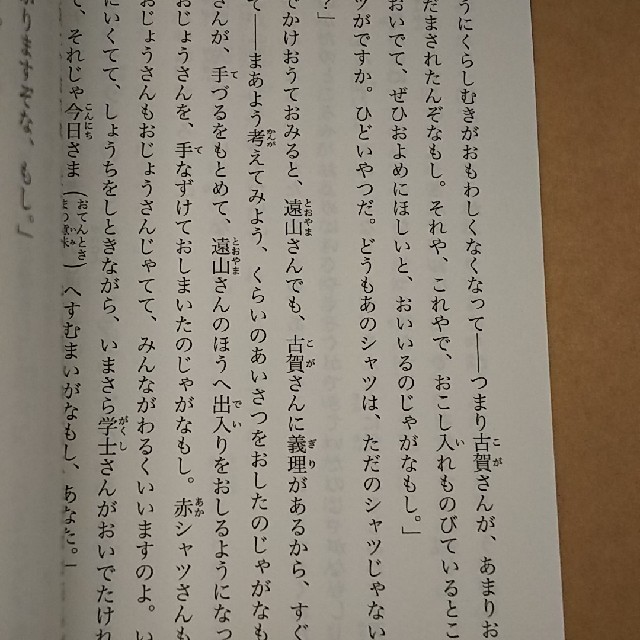 うにくらしむきがおもわしくなくなって――つまり古賀さんが、あまりお
だまされたんぞなもし。それや、これやで、おこし入れものびているとこ
おいでて、ぜひおよめにほしいと、おいいるのじゃがなもし。」
ツがですか。ひどいやつだ。どうもあのシャツは、ただのシャツじゃない
？」
でかけおうておみると、遠山さんでも、古賀さんに義理があるから、すぐ
て――まあよう考えてみよう、くらいのあいさつをおしたのじゃがなも
さんが、手づるをもとめて、遠山さんのほうへ出入りをおしるようになっ
おじょうさんを、手なずけておしまいたのじゃがなもし。赤シャツさんも
おじょうさんもおじょうさんじゃてて、みんながわるくいいますのよ。い
にいくてて、しょうちをしときながら、いまさら学士さんがおいでたけれ
て、それじゃ今日さま（おてんとさまの意味）へすむまいがなもし、あなた。」
りますぞな、もし。」